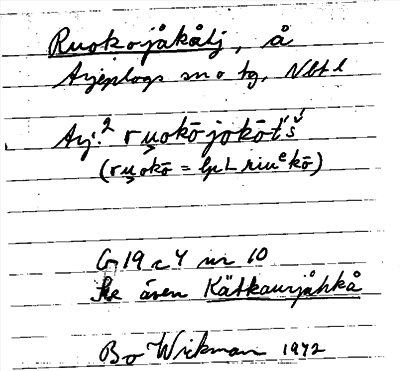 Ruokojåkåtj, å
Arjeplogs sn o tg, Nbt l
Arj.² ru̯okō jokōt́š́
(ru̯okō = lpL riuᵉkō)
G 19 c 4 nr 10
Se även Kätkaurjåhkå
Bo Wickman 1972